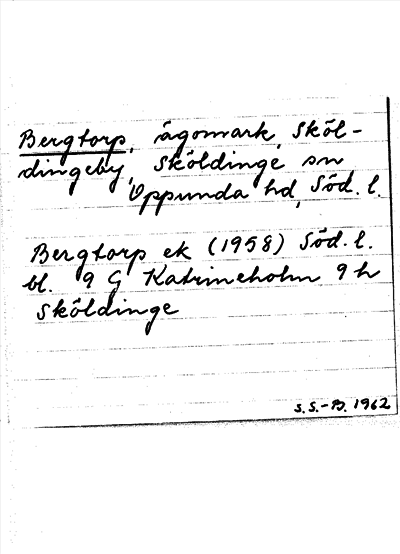 Bergtorp, ägomark, Sköl-
dingeby, Sköldinge sn,
Oppunda hd, Söd. l.
Bergtorp ek (1958) Söd. l.
bl. 9 G Katrineholm 9 h
Sköldinge
S.S.-B. 1962